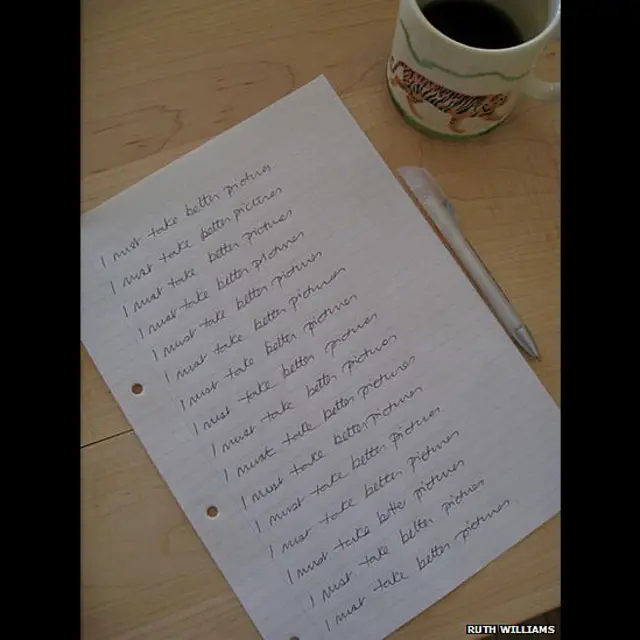 I must take better pictures
I must take better pictures
I must take better pictures
I must take better pictures
I must take better pictures
I must take better pictures
I must take better pictures
I must take better pictures
I must take better pictures
I must take better pictures
I must take better pictures
I must take better pictures
I must take better pictures
I must take better pictures
I must take better pictures
I must take better pictures
RUTH WILLIAMS